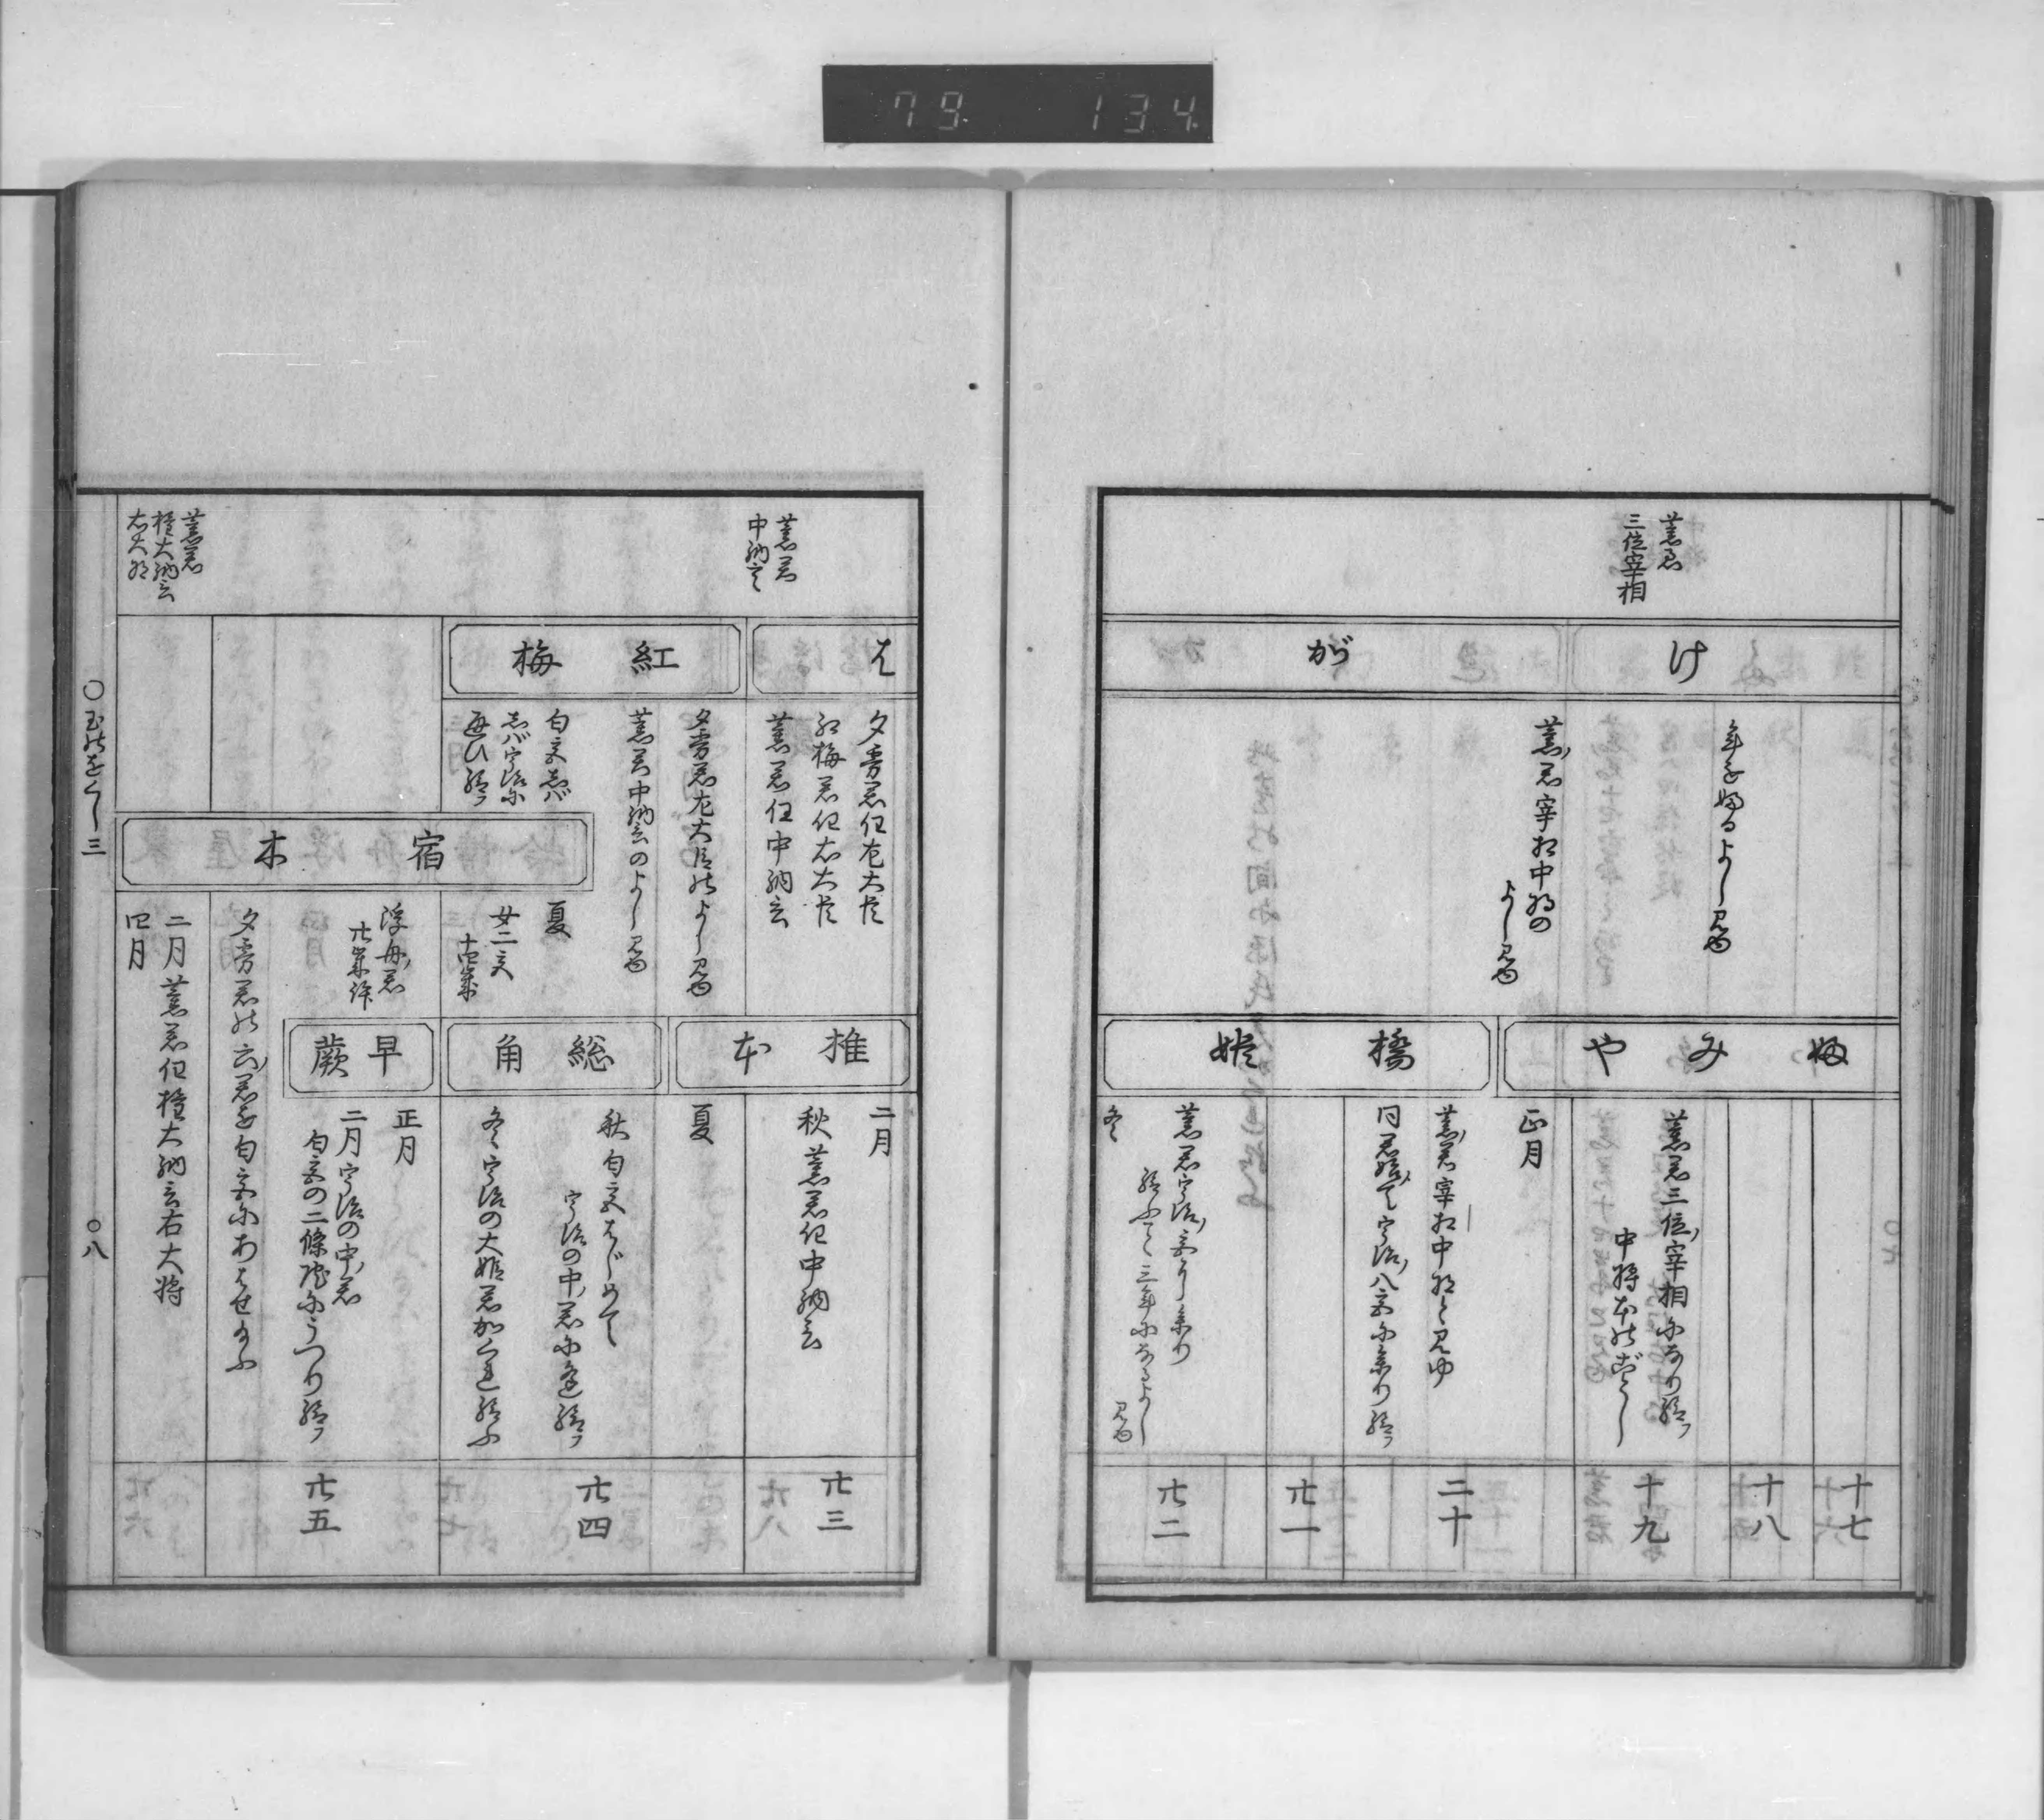 79 134
薫君
三位宰相
け
が
年を始るよし見ゆ
薫君宰相中将の
よし見ゆ
みや
橋姫
薫君三位宰相になり給フ
中将もとのごとし
正月
薫君宰相中将と見ゆ
同君始て宇治八宮に参り給フ
薫君宇治宮に参り
給ふて三年になるよし
見ゆ
冬
十七
十八
十九
二十
廿一
廿二
薫君
中納言
薫君
権大納言
右大将
は
紅梅
夕霧君任左大臣
紅梅君任右大臣
薫君任中納言
夕霧君左大臣のよし見ゆ
薫君中納言のよし見ゆ
匂宮しば
しば宇治に
通ひ給フ
宿木
夏
女二宮
十四歳
浮舟君
廿歳許
夕霧君の六君を匂宮にあはせ給ふ
二月薫君任権大納言右大将
四月
椎本
総角
早蕨
二月
秋薫君任中納言
夏
秋匂宮はじめて
宇治の中君に逢給フ
冬宇治の大姫君かくれ給ふ
正月
二月宇治の中君
匂宮の二條院にうつり給フ
廿三
廿四
廿五
廿六
○玉のをぐし三
○八